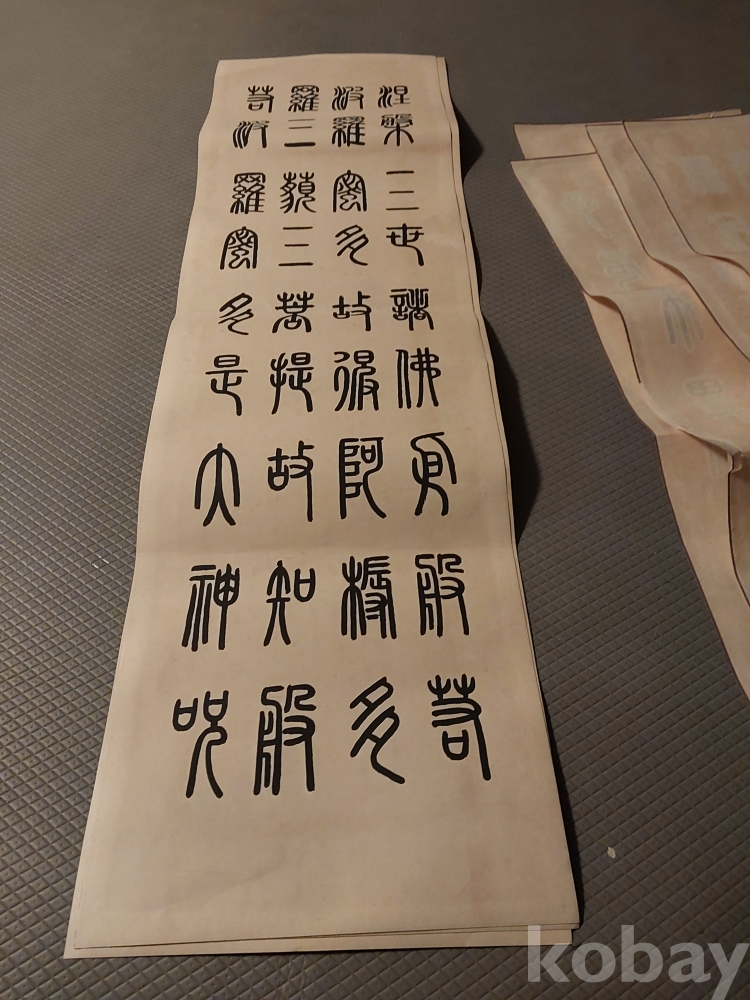 涅槃三世諸佛依般若
波羅蜜多故得阿耨多
羅三藐三菩提故知般
若波羅蜜多是大神呪
kobay